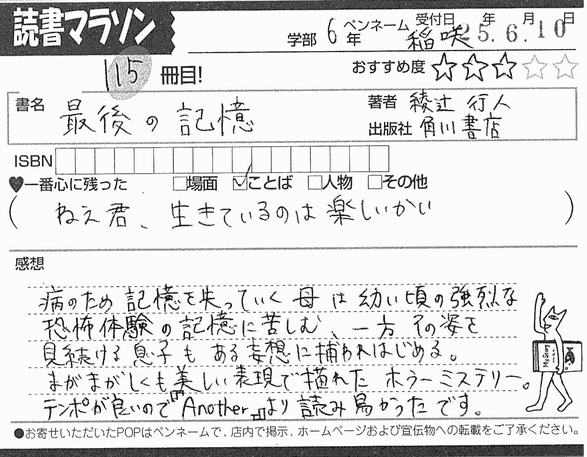 読書マラソン
学部 6年 ペンネーム 稲咲 受付日 25年6月10日
115 冊目!
おすすめ度 ☆☆☆☆☆
書名 最後の記憶
著者 綾辻 行人
出版社 角川書店
ISBN
♥一番心に残った □場面 ☑ことば □人物 □その他
(ねえ君、生きているのは楽しいかい)
感想
病のため記憶を失っていく母は幼い頃の強烈な
恐怖体験の記憶に苦しむ、一方その姿を
見続ける息子もある妄想に捕われはじめる。
まがまがしくも美しい表現で描れたホラーミステリー。
テンポが良いので『Another』より読み易かったです。
●お寄せいただいたPOPはペンネームで、店内で掲示、ホームページおよび宣伝物への転載をご了承ください。